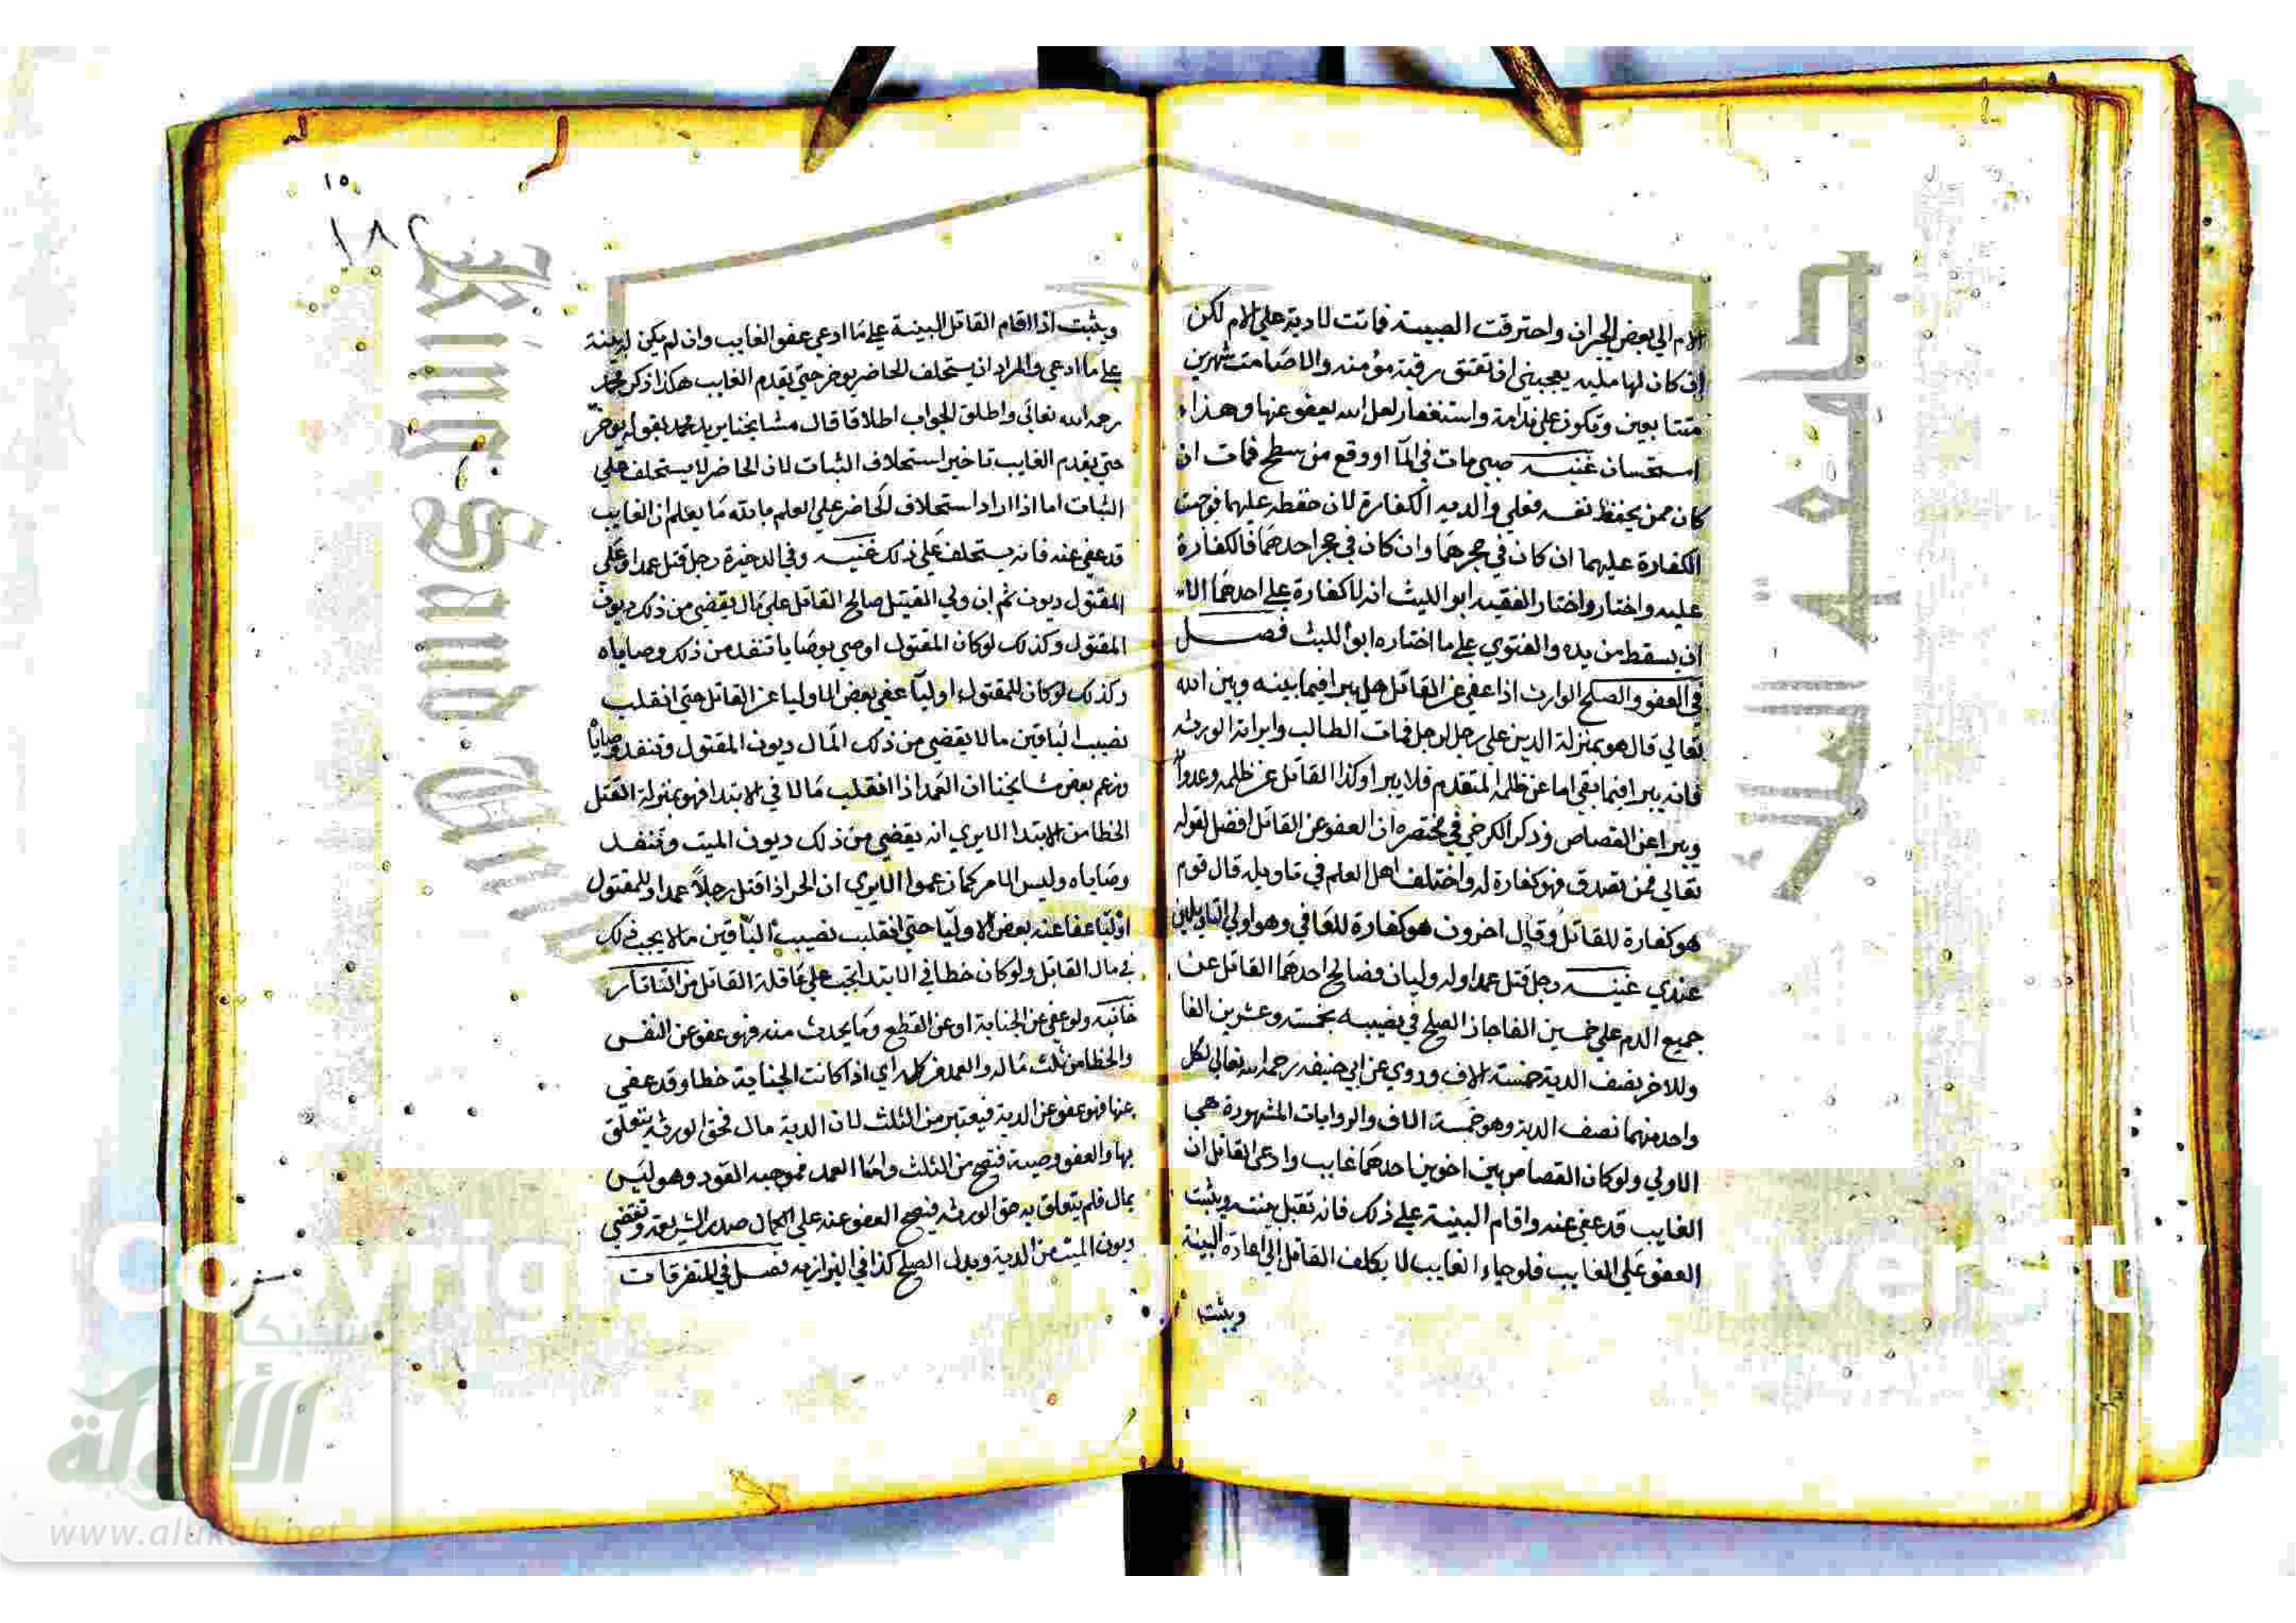 الام الي بعض الجيران واحترقت الصبية فماتت لا دية علي الام لكن
ان كان لها ملية يعجبني ان تعتق رقبة مؤمنة والا صامت شهرين
متتابعين وتكون علي ندامة واستغفار لعل الله يعفو عنها وهذا
استحسان غنية صبي مات في الماء او وقع من سطح فمات ان
كان ممن يحفظ نفسه فعلي والديه الكفارة لان حفظه عليهما فوجبت
الكفارة عليهما ان كان في حجرهما وان كان في حجر احدهما فالكفارة
عليه واختار واختار الفقيه ابو الليث انه لا كفارة علي احدهما الا
ان يسقط من يده والفتوي علي ما اختاره ابو الليث فصل
في العفو والصلح الوارث اذا عفي عن القاتل هل يبرا فيما بينه وبين الله
تعالي قال هو بمنزلة الدين علي رجل لرجل فمات الطالب وابراته الورثة
فانه يبرا فيما بقي اما عن ظلمه المتقدم فلا يبرا وكذا القاتل عن ظلمه وعدوا
ويبرا عن القصاص وذكر الكرخي في مختصره ان العفو عن القاتل افضل لقوله
تعالي فمن تصدق فهو كفارة له واختلف اهل العلم في تاويله قال قوم
هو كفارة للقاتل وقال اخرون هو كفارة للعافي وهو اولي التاويلين
عندي غنية رجل قتل عمدا وله وليان فصالح احدهما القاتل عن
جميع الدم علي خمسين الفا جاز الصلح في نصيبه بخمسة وعشرين الفا
وللاخر نصف الدية خمسة الاف وروي عن ابي حنيفه رحمه الله تعالي لكل
واحد منهما نصف الدية وهو خمسة الاف والروايات المشهورة هي
الاولي ولو كان القصاص بين اخوين احدهما غايب وادعي القاتل ان
الغايب قد عفي عنه واقام البينة علي ذلك فانه تقبل بينته ويثبت
العفو علي الغايب فلو جاء الغايب لا يكلف القاتل الي اعادة البينة
ويثبت
١٥
١٨٢
ويثبت اذا اقام القاتل البينة علي ما ادعي عفو الغايب وان لم يكن له بينة
علي ما ادعي والمراد ان يستحلف الحاضر يوخر حتي يقدم الغايب هكذا ذكر محمد
رحمه الله تعالي واطلق الجواب اطلاقا قال مشايخنا يريد محمد بقوله يوخر
حتي يقدم الغايب تاخير استحلاف الثبات لان الحاضر لا يستحلف علي
الثبات اما اذا اراد استحلاف الحاضر علي العلم بالله ما يعلم ان الغايب
قد عفي عنه فانه يستحلف علي ذلك غنية وفي الدخيرة رجل قتل عمدا وعلي
المقتول ديون ثم ان ولي القتيل صالح القاتل علي مال يقضي من ذلك ديون
المقتول وكذلك لو كان المقتول اوصي بوصايا تنفد من ذلك وصاياه
وكذلك لو كان للمقتول اوليا عفي بعض الاوليا عن القاتل حتي انقلب
نصيب الباقين مالا يقضي من ذلك المال ديون المقتول وتنفد وصاياه
وزعم بعض مشايخنا ان العمد اذا انقلب مالا في الابتدا فهو بمنزلة القتل
الخطا من الابتدا الا يري انه يقضي من ذلك ديون الميت وتنفد
وصاياه وليس الامر كما زعموا الا يري ان الحر اذا قتل رجلا عمدا وللمقتول
اوليا عفا عنه بعض الاوليا حتي انقلب نصيب الباقين مالا يجب ذلك
في مال القاتل ولو كان خطا في الابتدا تجب علي عاقلة القاتل من التاتار
خانيه ولو عفي عن الجناية او عن القطع وما يحدث منه فهو عفو عن النفس
والخطا من ثلث ماله والعمد من كله اي اذا كانت الجناية خطا وقد عفي
عنها فهو عفو عن الدية فيعتبر من الثلث لان الدية مال فحق الورثه يتعلق
بها والعفو وصية فتصح من الثلث واما العمد فموجبه القود وهو ليس
بمال فلم يتعلق به حق الورثه فيصح العفو عنه علي الكمال صدر الشريعة وتقضي
ديون الميت من الدية وبدل الصلح كذا في البزازيه فصل في المتفرقات
جامعة الملك
King Saud
Copyrig
iversity
شبكة
الألوكة
www.alukah.net